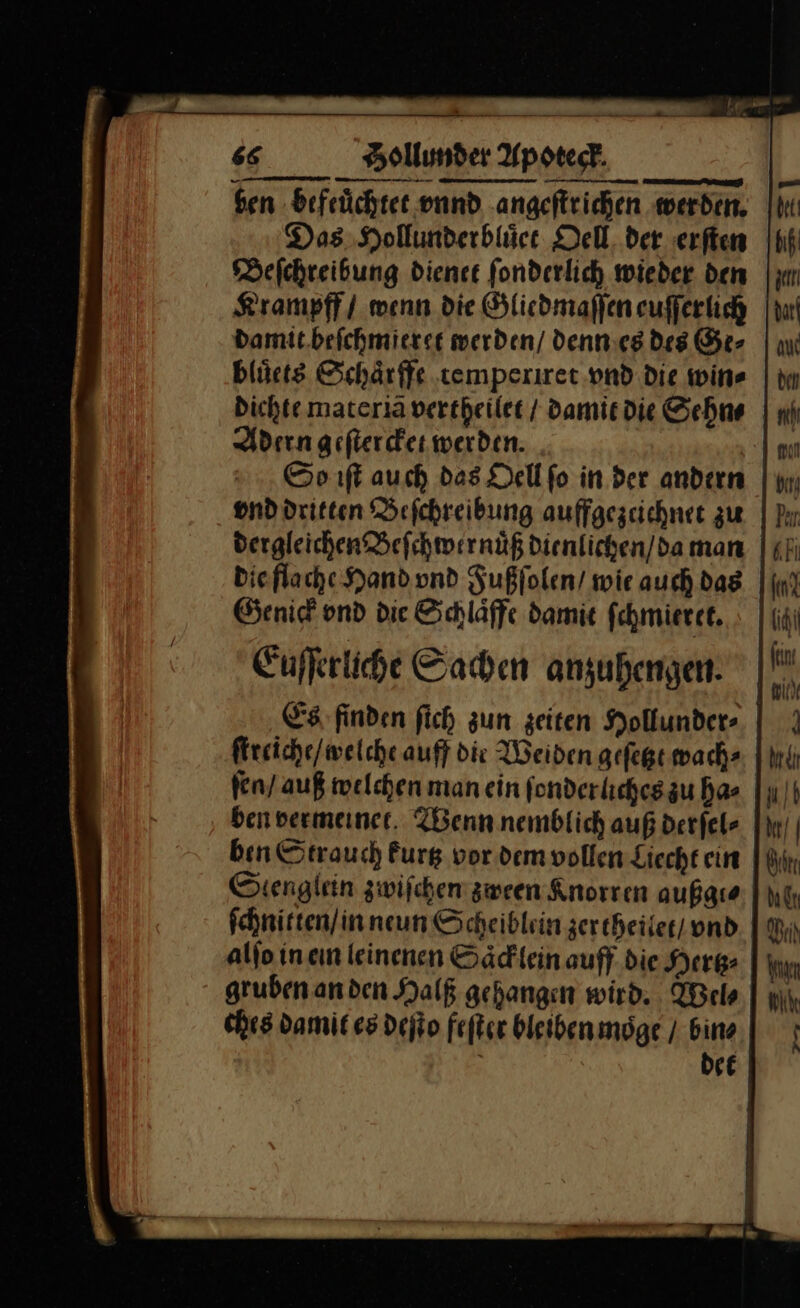 66 Hollunder Apoteck.
ben befeuͤchtet vnnd angeſtrichen werden.
Das Hollunderbluͤet Oell der erſten
Beſchreibung dienet ſonderlich wieder den
Krampff / wenn die Gliedmaſſen euſſerlich
damit beſchmieret werden / denn es des Ge⸗
bluͤets Schaͤrffe temperiret vnd die win⸗
dichte materiã vertheilet / damit die Sehn⸗
Adern geſtercket werden.
So iſt auch das Oell ſo in der andern
vnd dritten Beſchreibung auffgezeichnet zu
dergleichen Beſchwernuͤß dienlichen / da man
die flache Hand vnd Fußſolen / wie auch das
Genick vnd die Schlaͤffe damit ſchmieret.
Euſſerliche Sachen anzuhengen.
Es finden ſich zun zeiten Hollunder⸗
ſtreiche / welche auff die Weiden geſetzt wach⸗
ſen / auß welchen man ein ſonderliches zu ha⸗
ben vermeinet. Wenn nemblich auß derſel⸗
ben Strauch kurtz vor dem vollen Liecht ein
Stenglein zwiſchen zween Knorren außge⸗
ſchnitten / in neun Scheiblein zertheilet / vnd
alſo in ein leinenen Saͤcklein auff die Hertz⸗
gruben an den Halß gehangen wird. Wel⸗
ches damit es deſto feſter bleiben moͤge / bin⸗
det